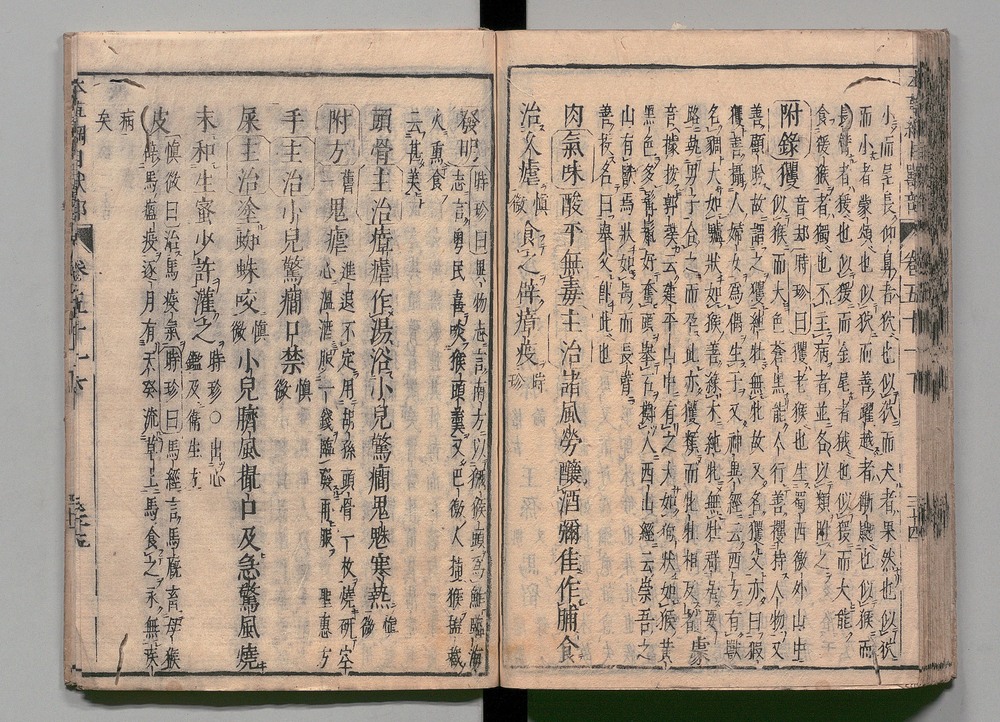 小而尾長仰鼻者狖也似狖而大者果然也似狖
而小者蒙頌也似狖而善躍越者獑𪕰也似猴而
長臂者猨也似猨而金尾者狨也似猨而大能
食猨猴者獨也不主病者並各以類附之
附錄玃
音却時珍曰玃老猴也生蜀西徼外山中
似猴而大色蒼黑能人行善攫持人物又
善顧盼故謂之玃純牡無牝故又名玃父亦曰猳
玃善攝人婦女為偶生子又神異經云西方有獸
名㺜大如驢狀如猴善緣木純牝無牡群居要
路執男子合之而孕此亦玃類而牝牡相反者豦
音據按郭璞云建平山中有之大如狗狀如猴黃
黑色多髯鬣好奮頭舉石擲人西山經云崇吾之
山有獸焉狀如禺而長臂
善投名曰舉父即此也
肉氣味酸平無毒主治諸風勞釀酒彌佳作脯食
治久瘧慎微食之辟瘴疫時珍
發明時珍曰異物志言南方以獼猴頭為鮓臨海
志言粵民喜啖猴頭羹又巴徼人捕猴鹽藏
火熏食
云甚美
頭骨主治瘴瘧作湯浴小兒驚癇鬼魅寒熱慎微
附方舊一鬼瘧進退不定用胡孫頭骨一枚燒研空
心溫酒服一錢臨發再服聖惠方
手主治小兒驚癇口禁慎微
屎主治塗蜘蛛咬慎微小兒臍風撮口及急驚風燒
末和生蜜少許灌之時珍○出心鑑及衛生方
皮主治慎微曰治馬疫氣時珍曰馬經言馬厩畜母猴
辟馬瘟疫逐月有天癸流草上馬食之永無疾
病
矣